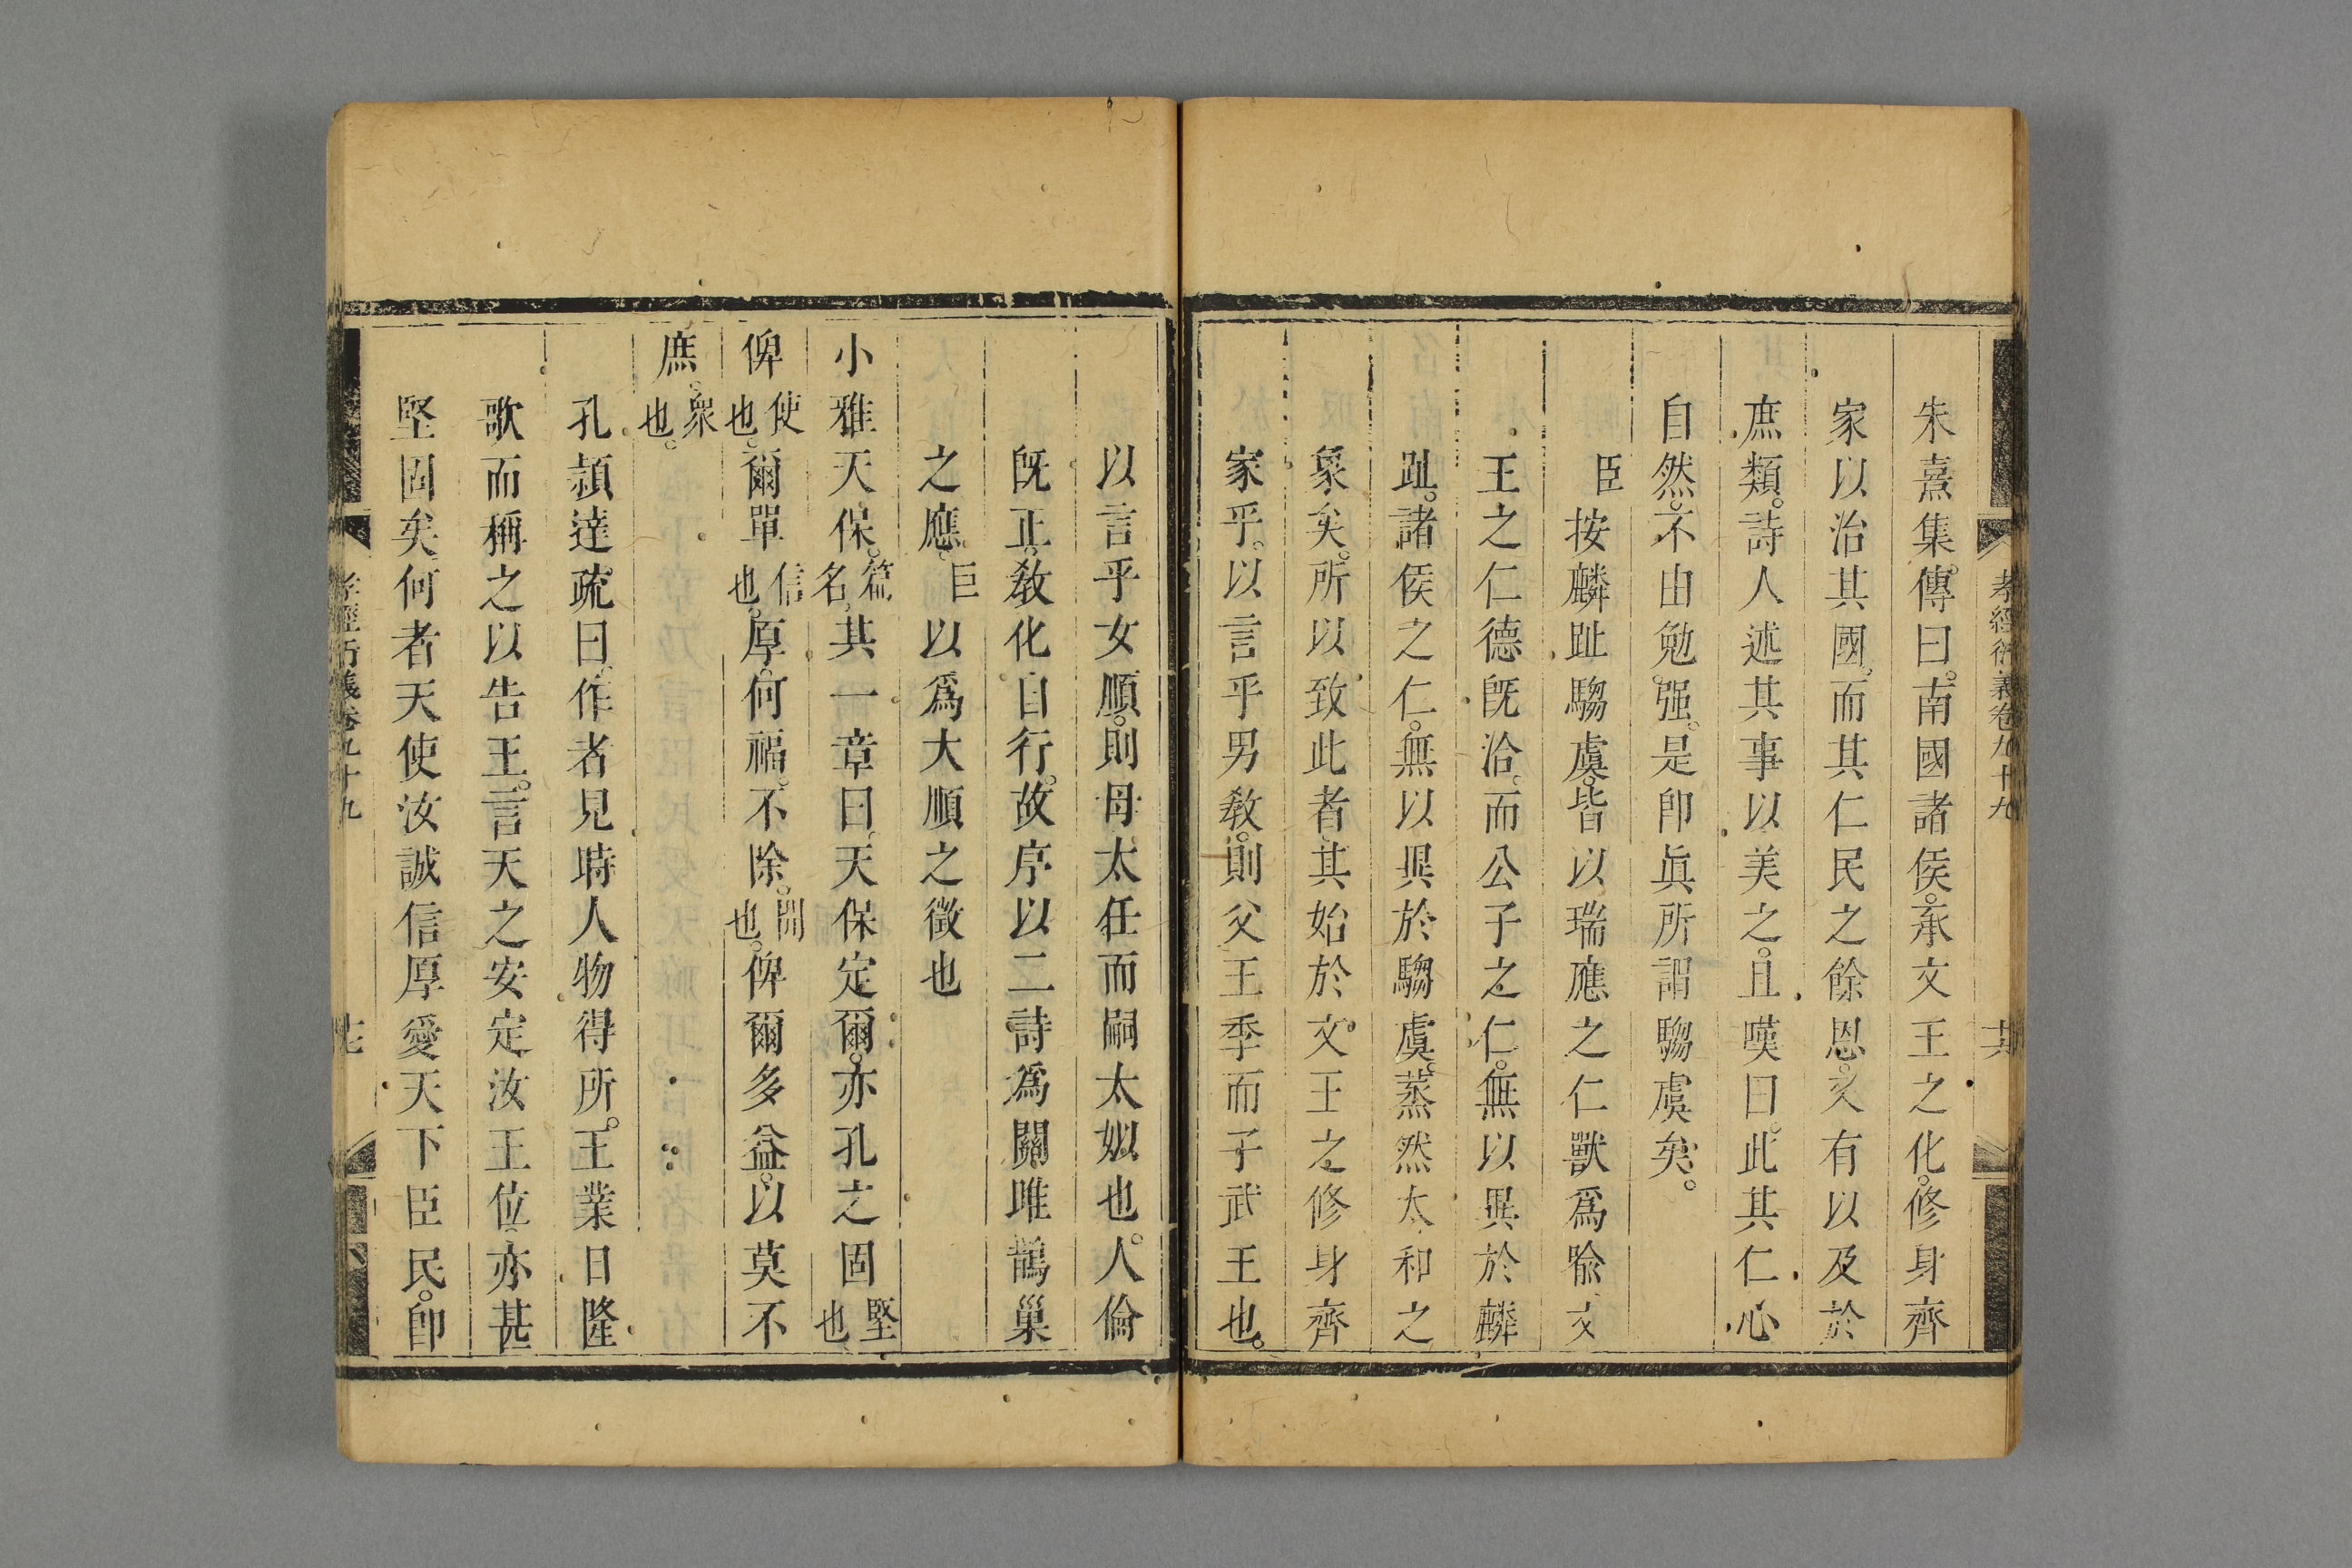 孝經衍義卷九十九
朱熹集傳曰。南國諸侯。承文王之化。修身齊
家以治其國。而其仁民之餘恩。又有以及於
庶類。詩人述其事以美之。且嘆曰。此其仁心
自然。不由勉强。是卽眞所謂騶虞矣。
臣按麟趾騶虞。皆以瑞應之仁獸爲喩文
王之仁德旣洽。而公子之仁。無以異於麟
趾。諸侯之仁。無以異於騶虞。蒸然太和之
象矣。所以致此者。其始於文王之修身齊
家乎。以言乎男敎。則父王季而子武王也。
以言乎女順。則母太任而嗣太姒也。人倫
旣正。敎化自行。故序以二詩爲關雎鵲巢
之應。臣以爲大順之徵也
小雅天保。篇名。其一章曰。天保定爾。亦孔之固堅也
俾使也。爾單信也。厚。何福。不除。開也。俾爾多益。以莫不
庶。衆也。
孔頴達疏曰。作者見時人物得所。王業日隆
歌而稱之以告王。言天之安定汝王位。亦甚
堅固矣何者天使汝誠信厚愛天下臣民。卽
孝經衍義卷九十九